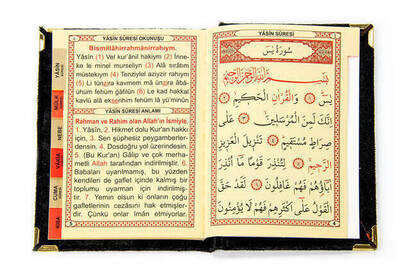 YÂSİN
MÜLK
NEBE
VÂKIA
CUMA
KISA
YÂSÎN SÛRESİ OKUNUŞU
Bismillâhirrahmânirrahıym.
Yâsîn (1) Vel kur'ânil hakiym (2) İnne-
ke le minel murseliyn (3) Alâ sırâtım
müstekıym (4) Tenziylel aziyzir rahıym
(5) Li tünzıra kavmem mâ ünzira âbâ-
ühüm fehüm ğâfilûn (6) Le kad hakkal
kavlü alâ ekserihim fehüm lâ yü'minûn
YÂSÎN SÛRESİ ANLAMI
Rahman ve Rahim olan Allah'ın ismiyle.
1. Yâsîn, 2. Hikmet dolu Kur'an hakkı
için, 3. Sen şüphesiz peygamberler-
densin. 4. Dosdoğru yol üzerindesin.
5. (Bu Kur'an) Gâlip ve çok merha-
metli Allah tarafından indirilmiştir. 6.
Babaları uyarılmamış, bu yüzden
kendileri de gaflet içinde kalmış bir
toplumu uyarman için indirilmiş-
tir. 7. Yemin olsun ki onların çoğu
gafletlerinin cezasını hak etmişler-
dir. Çünkü onlar îman etmiyorlar.
YÂSÎN SÛRESİ
سُورَةُ يٰسٓ
بِسْمِ اللّٰهِ الرَّحْمٰنِ الرَّحِيمِ
يٰسٓ ﴿١﴾ وَالْقُرْاٰنِ الْحَكِيمِ ﴿٢﴾
اِنَّكَ لَمِنَ الْمُرْسَلِينَ ﴿٣﴾ عَلٰى
صِرَاطٍ مُسْتَقِيمٍ ﴿٤﴾ تَنْزِيلَ الْعَزِيزِ
الرَّحِيمِ ﴿٥﴾ لِتُنْذِرَ قَوْمًا مَٓا اُنْذِرَ
اٰبَٓاؤُهُمْ فَهُمْ غَافِلُونَ ﴿٦﴾ لَقَدْ حَقَّ
الْقَوْلُ عَلٰٓى اَكْثَرِهِمْ فَهُمْ لَا يُؤْمِنُونَ
4